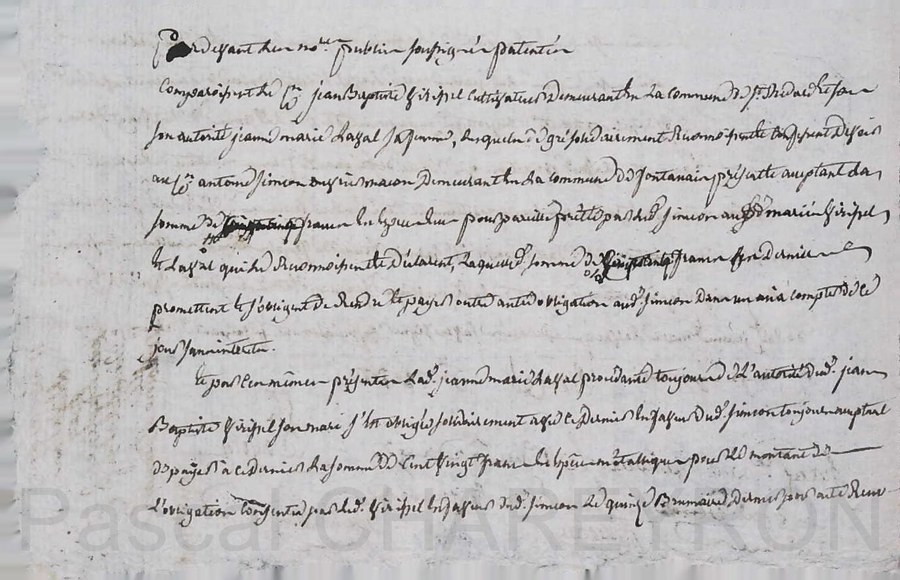 Pardevant les no.res publics soussignés patentés
Comparoissent le C.en jean Baptiste Virissel Cultivateur demeurant en la commune de St. Didard et sous
son autorité jeanne marie Laval sa femme, lesquels de gré solidairement Reconnoissent et Confessent devoir
au C.en antoine Simeon ouvrier macon demeurant en la commune de fontanais présent et acceptant la
somme de francs en espece pour pareille prêtée par led. Simeon auxd. mariés Virissel
et Laval qui le Reconnoissent et déclarent, Laquelle somme de francs ces derniers
promettent et s'obligent de Rendre et payer outre autre obligation aud. Simeon dans un an à compter de ce
jour sans interets.
Et par les mêmes présentes Lad. jeanne marie Laval procédant toujours de l'autorité dud. jean
Baptiste Virissel son mari s'est obligée solidairement avec ce dernier en faveur dud. Simeon toujours acceptant
de payer à ce dernier la somme de Cent Vingt francs en espèce métallique pour le montant de
L'obligation Consentie par led. Virissel en faveur dud. Simeon Le quinze Brumaire dernier par acte Reçu
Pascal CHAREYRON